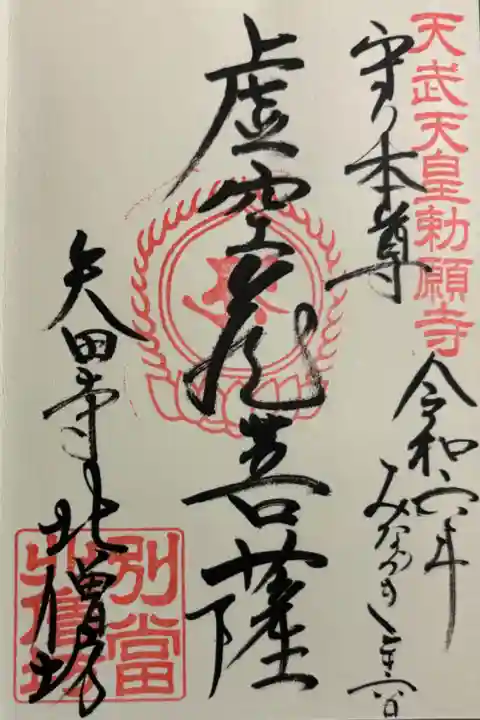 天武天皇勅願寺
守り本尊
令和六年
みなつき
虚空蔵菩薩
矢田寺北僧坊
別當
北僧坊